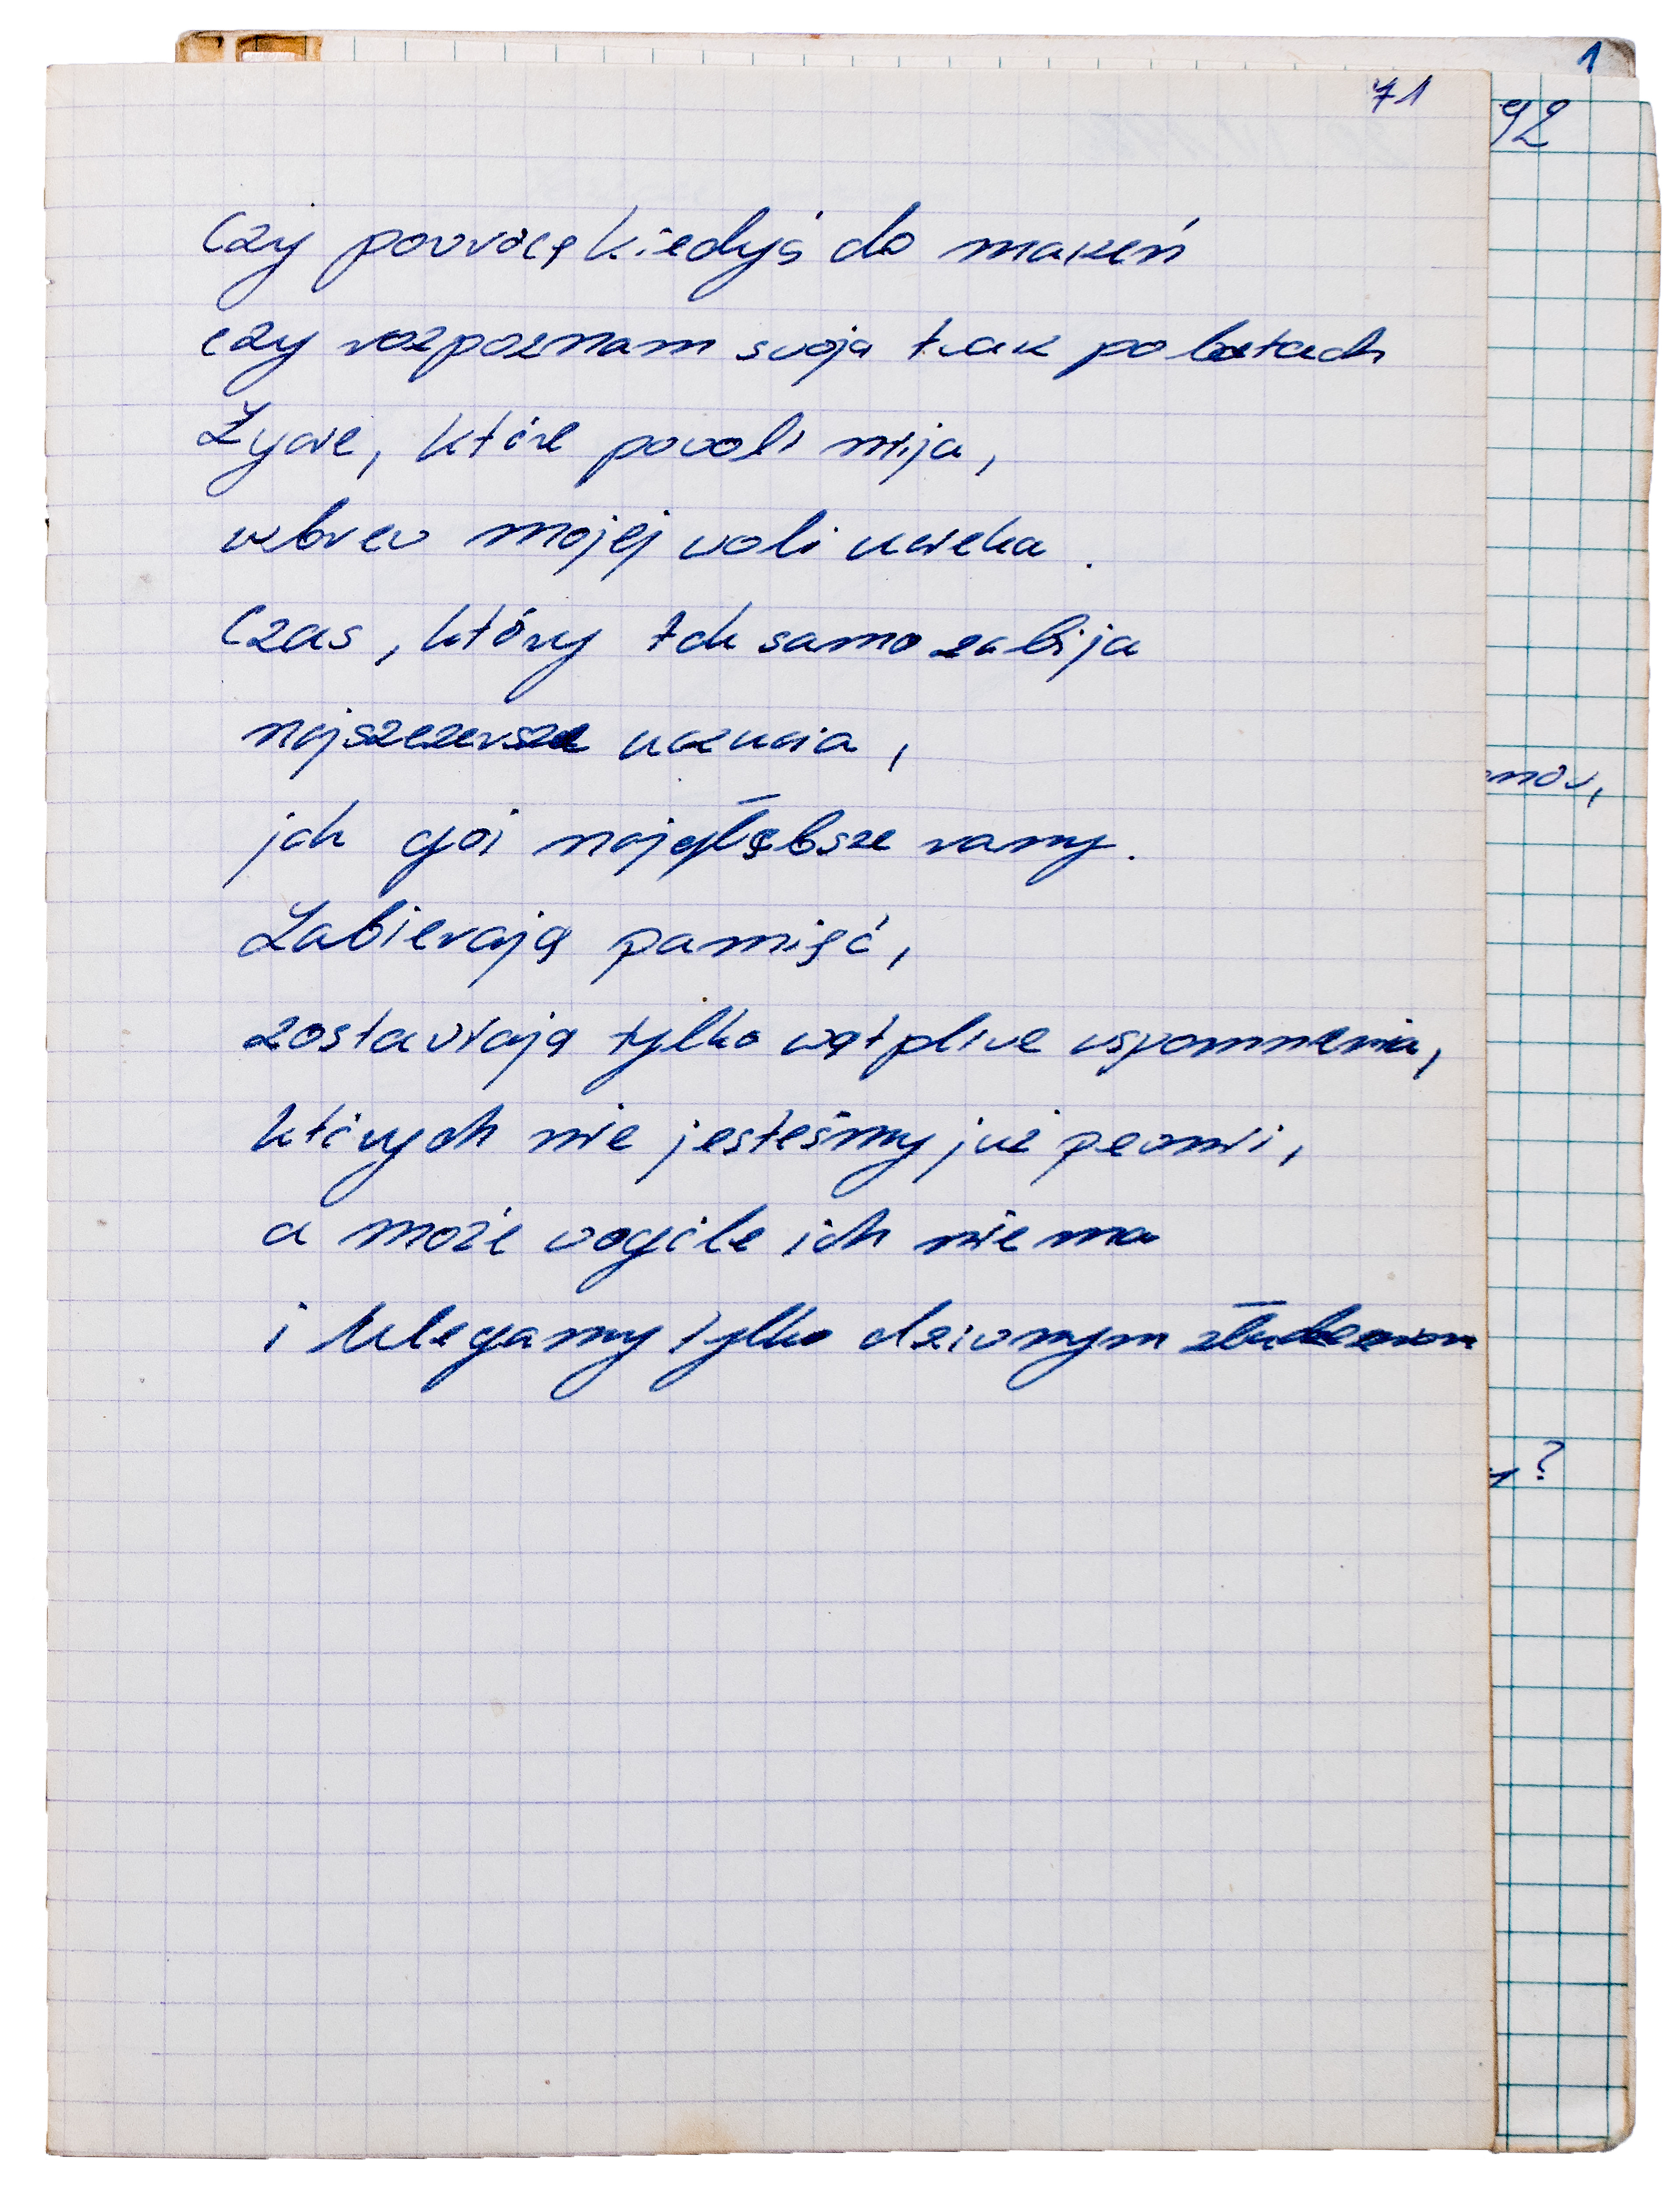 1
71
92
Czy powrócę kiedyś do marzeń
czy rozpoznam swoją twarz po latach
Życie, które powoli mija,
wbrew mojej woli ucieka.
Czas, który tak samo zabija
najszczersze uczucia,
jak goi najgłębsze rany.
Zabierają pamięć,
zostawiają tylko wątpliwe wspomnienia,
których nie jesteśmy już pewni,
a może wogóle ich nie ma
i ulegamy tylko dziwnym złudzeniom
?